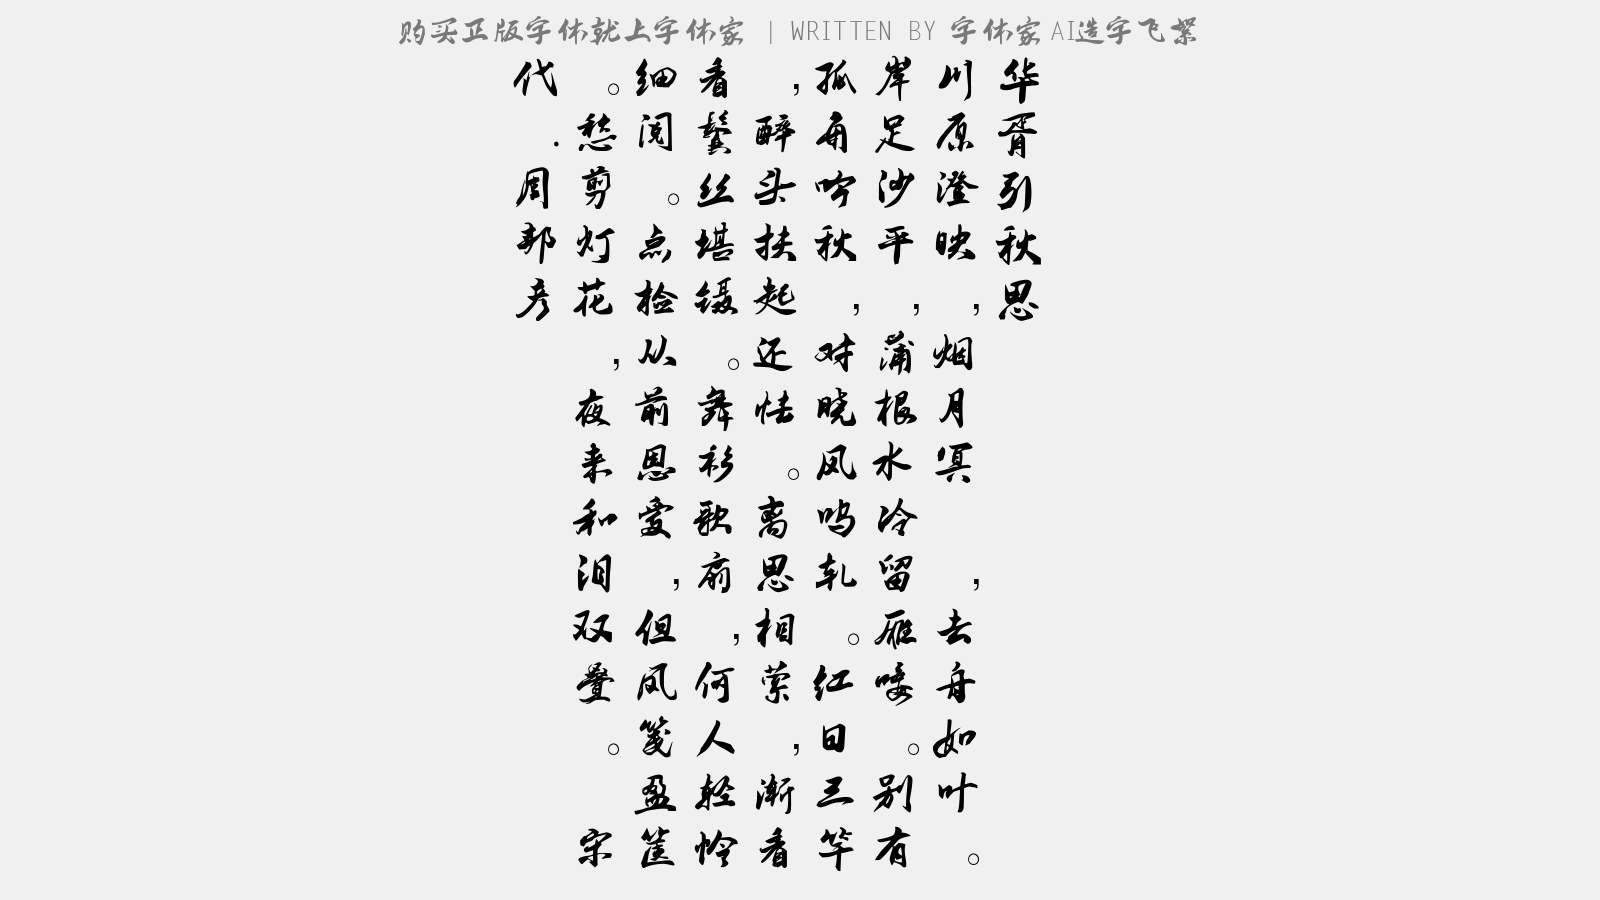 购买正版字体就上字体家 | WRITTEN BY 字体家AI造字飞絮
华胥引秋思
川原澄映，烟月冥，去舟如叶。
岸足沙平，蒲根水冷留雁唼。别有
孤角吟秋，对晓风呜轧。红日三竿
，醉头扶起还怯。离思相萦，渐看
看鬓丝堪镊。舞衫歌扇，何人轻怜
细阅。点检从前恩爱，但凤笺盈箧
。愁剪灯花，夜来和泪双叠。宋
代·周邦彦